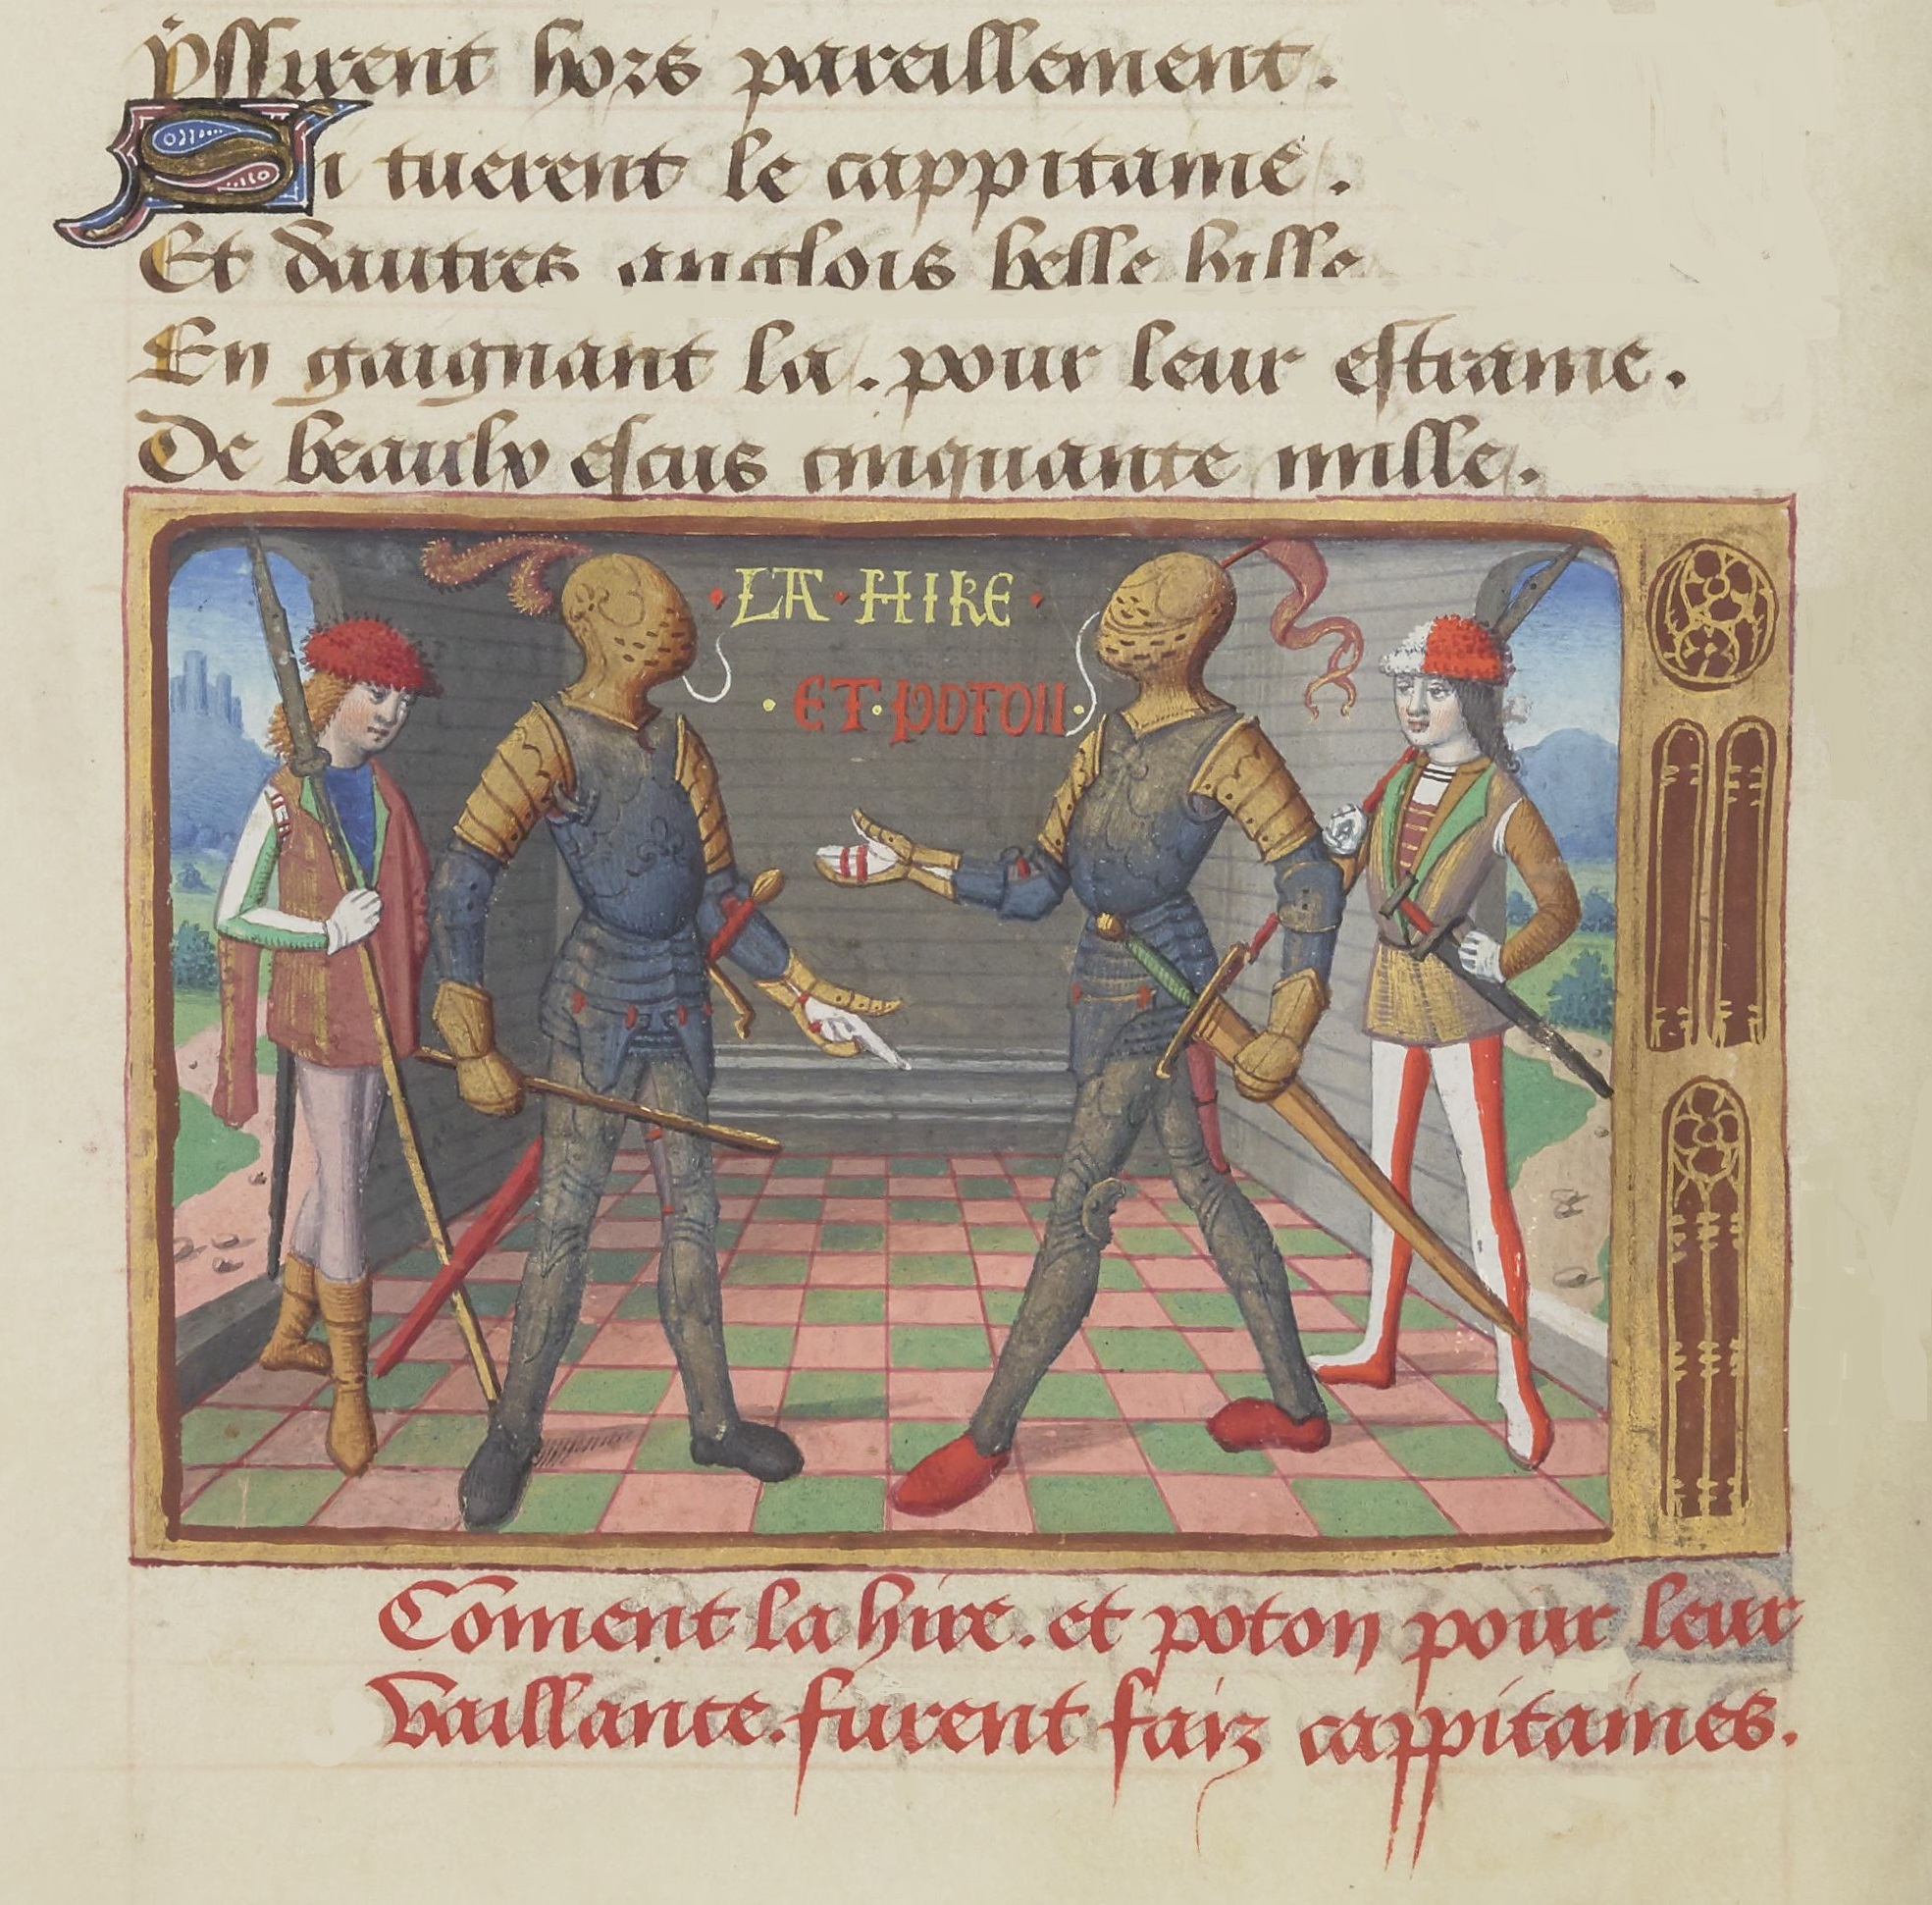 yssirent hors pareillement.
Si tuerent le cappitaine.
Et dautres anglois belle hille
En gaignant la. pour leur estraine.
De beaulx escus cinquante mille.
LA HIRE
ET POTON
Coment la hire. et poton pour leur
vaillance. furent faiz cappitaines.